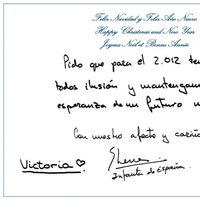 Feliz Navidad y Feliz Año Nuevo
Happy Christmas and New Year
Joyeux Noël et Bonne Année
Pido que para el 2.012 ten
todos ilusión y mantengam
esperanza de un futuro m
Con nuestro afecto y cariño
Victoria
Elena
Infanta de España